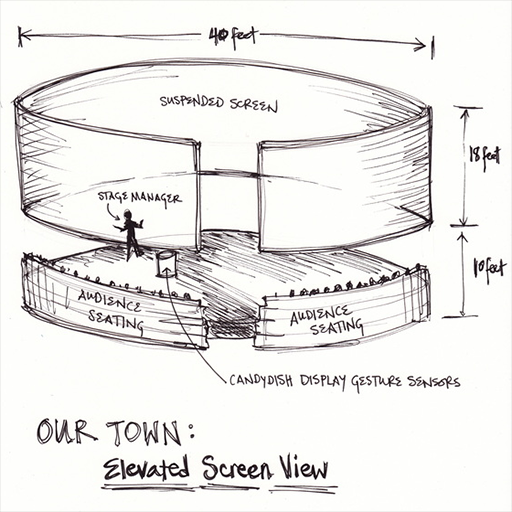 40 feet
SUSPENDED SCREEN
18 feet
STAGE MANAGER
10 feet
AUDIENCE
SEATING
AUDIENCE
SEATING
CANDYDISH DISPLAY GESTURE SENSORS
OUR TOWN:
Elevated Screen View